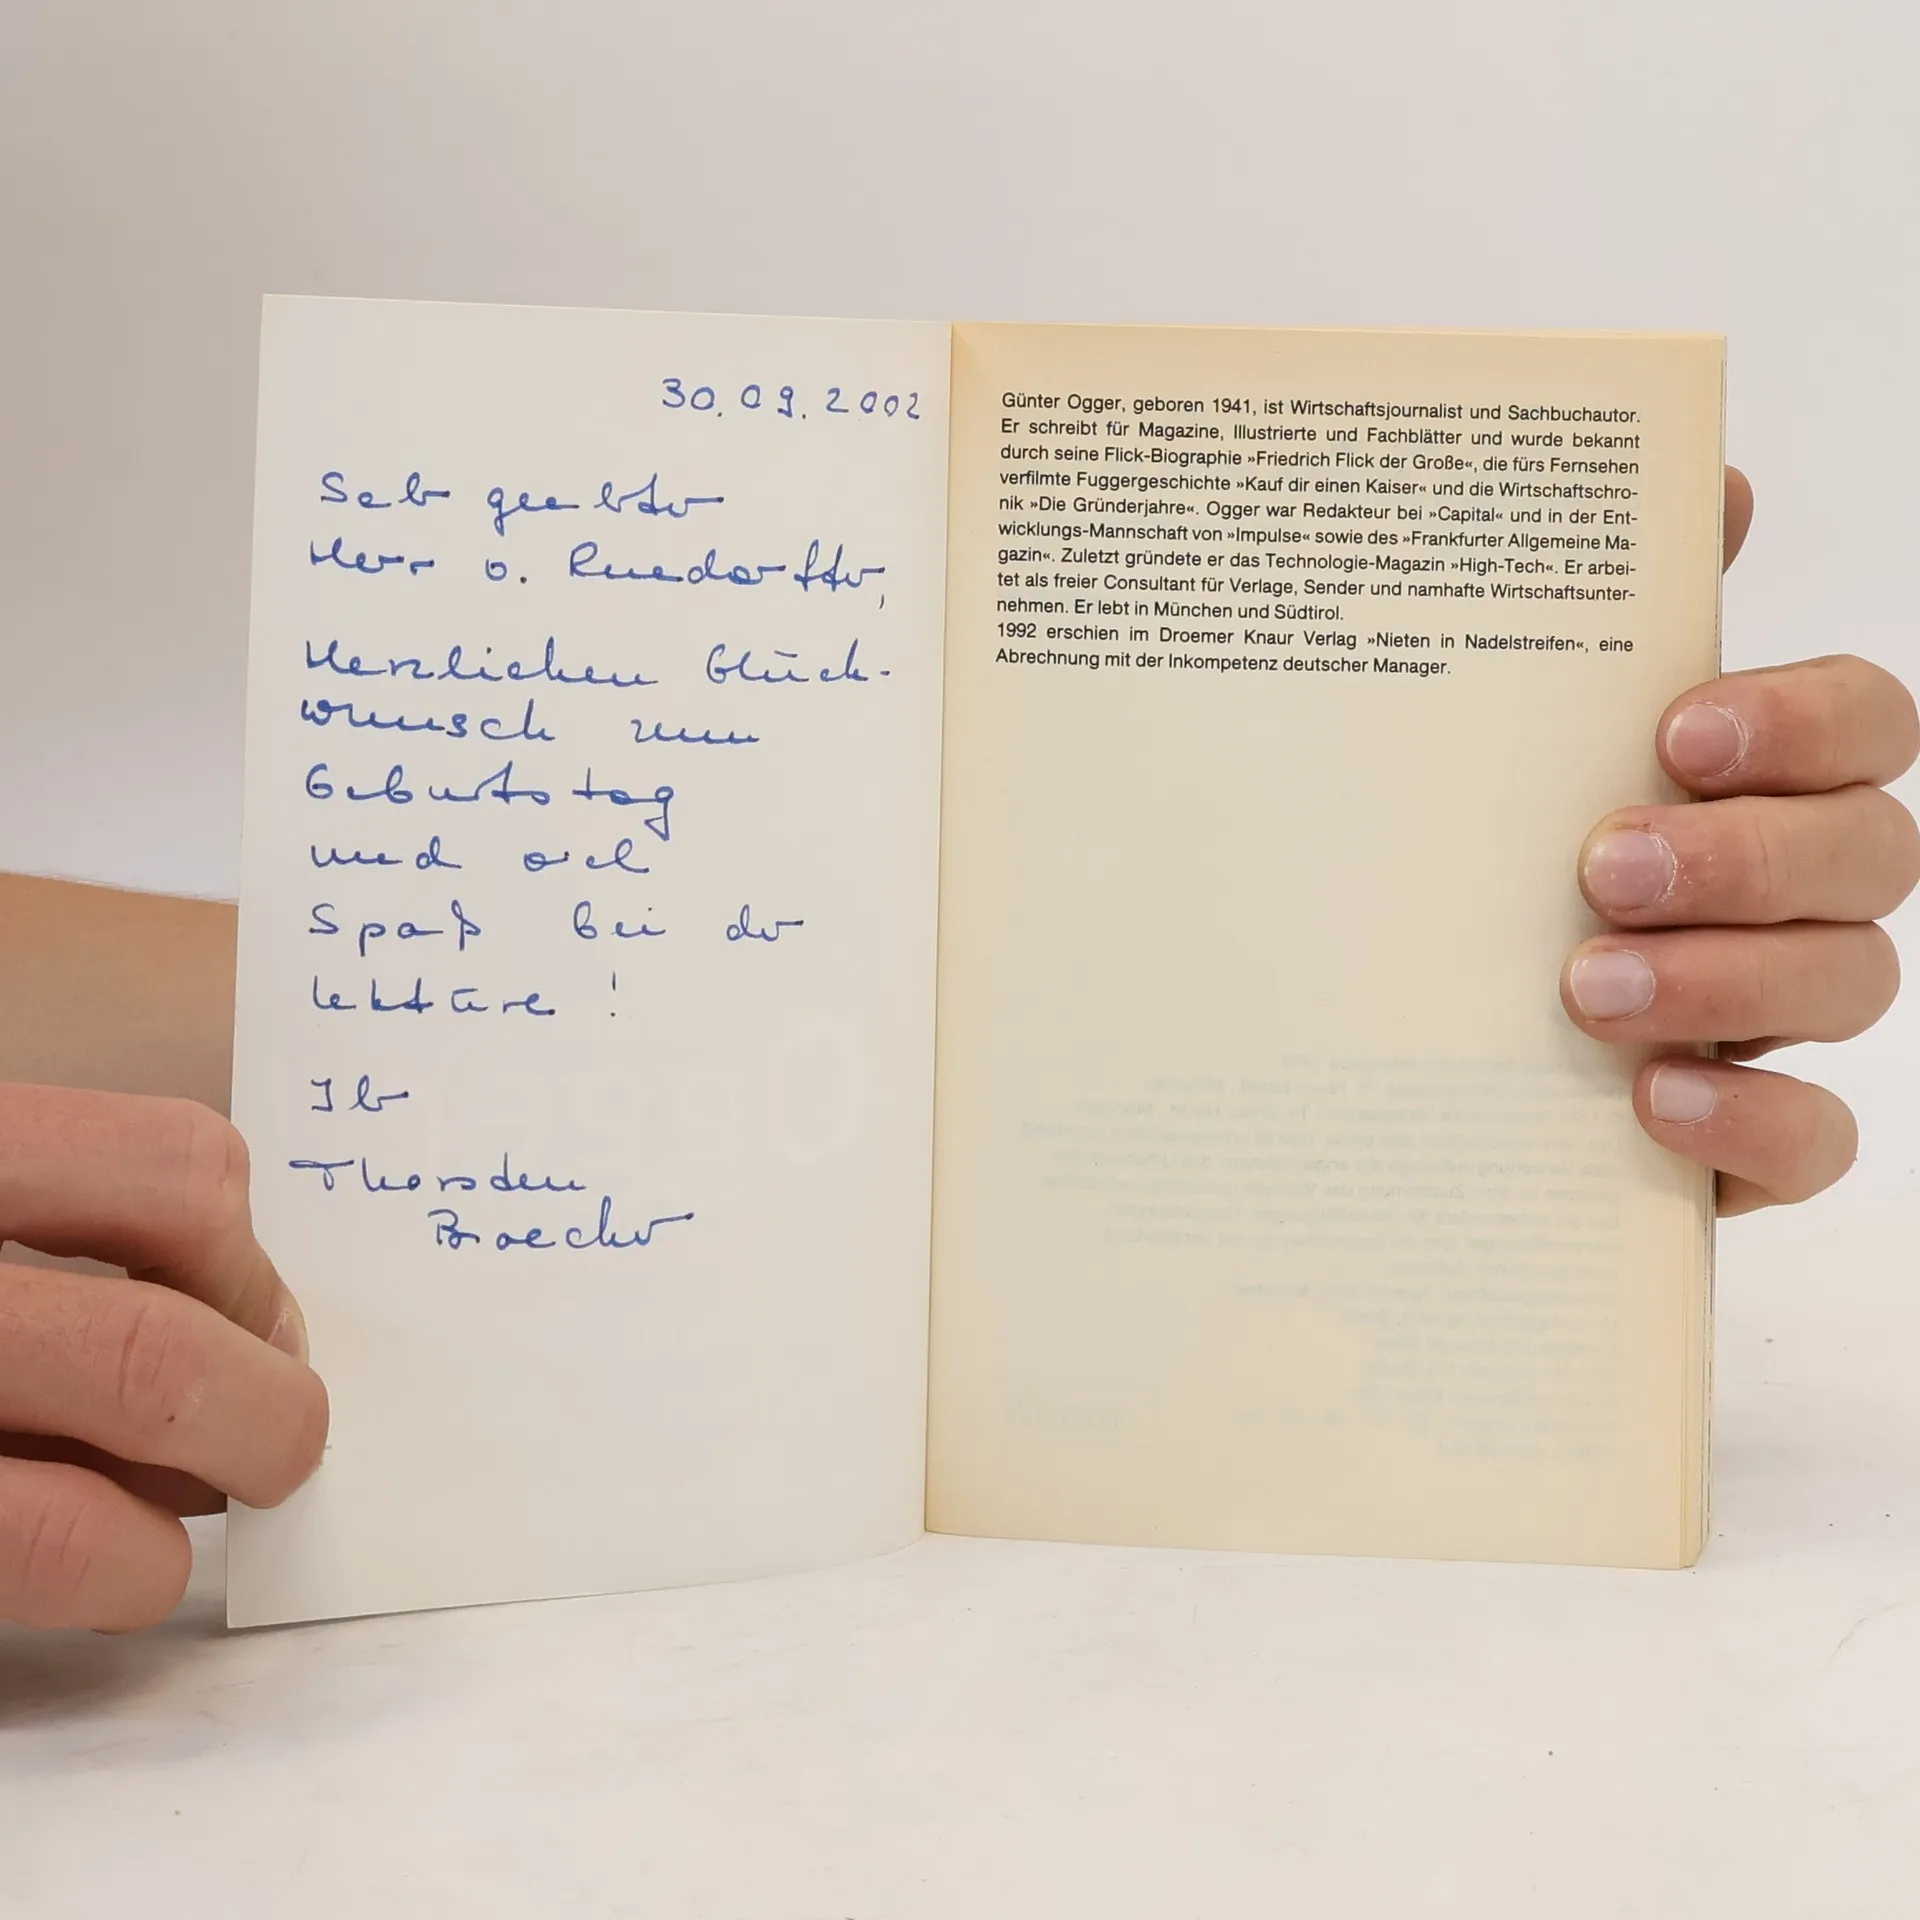 30.09.2002
Sehr geehrter
Herr v. Ruedorffer,
Herzlichen Glück-
wunsch zum
Geburtstag
und viel
Spaß bei der
Lektüre!
Ihr
Thorsden
Broecker
Günter Ogger, geboren 1941, ist Wirtschaftsjournalist und Sachbuchautor.
Er schreibt für Magazine, Illustrierte und Fachblätter und wurde bekannt
durch seine Flick-Biographie »Friedrich Flick der Große«, die fürs Fernsehen
verfilmte Fuggergeschichte »Kauf dir einen Kaiser« und die Wirtschaftschro-
nik »Die Gründerjahre«. Ogger war Redakteur bei »Capital« und in der Ent-
wicklungs-Mannschaft von »Impulse« sowie des »Frankfurter Allgemeine Ma-
gazin«. Zuletzt gründete er das Technologie-Magazin »High-Tech«. Er arbei-
tet als freier Consultant für Verlage, Sender und namhafte Wirtschaftsunter-
nehmen. Er lebt in München und Südtirol.
1992 erschien im Droemer Knaur Verlag »Nieten in Nadelstreifen«, eine
Abrechnung mit der Inkompetenz deutscher Manager.